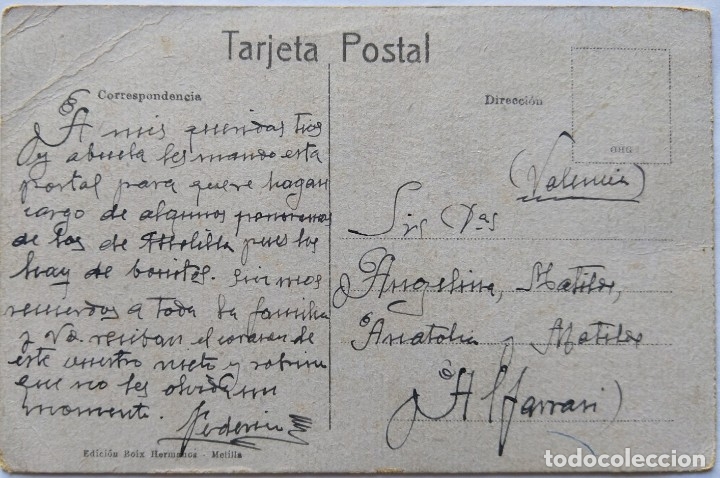 Tarjeta Postal
Correspondencia
Dirección
A mis queridas tias
y abuela les mando esta
postal para que se hagan
cargo de algunos panoramas
de los de Melilla pues los
hay de bonitos. Sin mas
recuerdos a toda la familia
y Vds. reciban el corazon de
este vuestro nieto y sobrino
que no les olvida un
momento.
Federico
(Valencia)
Sras
Angelina, Matilde,
Anatolia y Matilde
Alfarrasi)
Edición Boix Hermanos - Melilla
todocoleccion.net